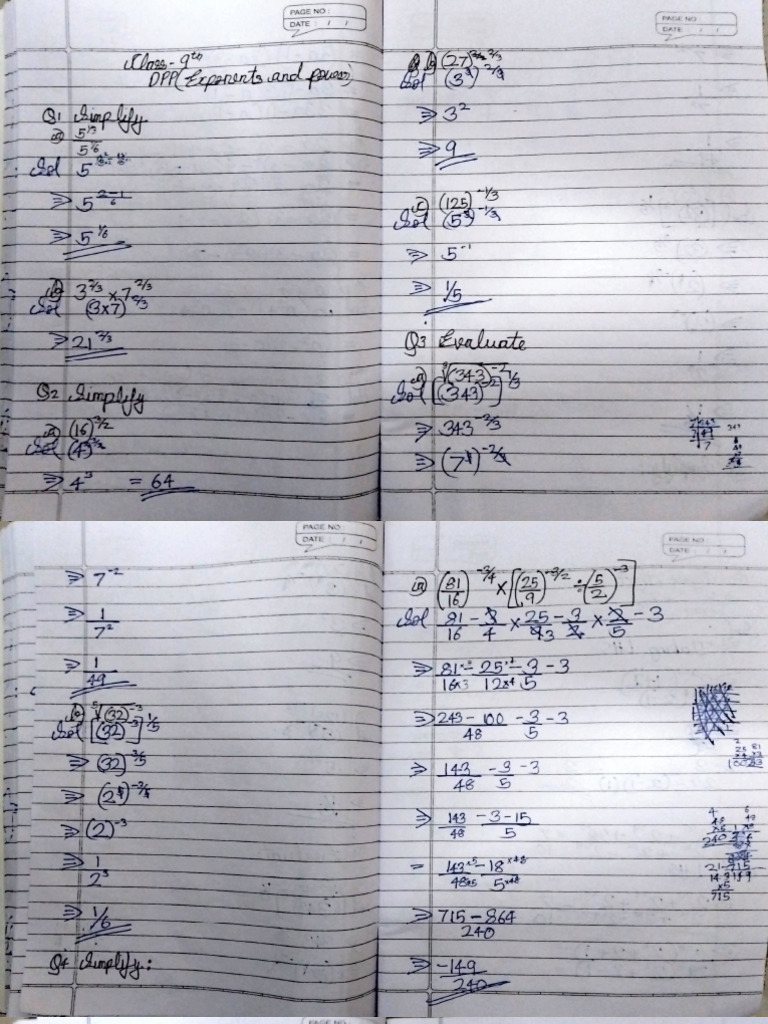 PAGE NO :
DATE : / /
Class - 9th
DPP (Exponents and power)
Q1 Simplify
a) 5^1/3
5^1/6
Sol 5
⇒ 5^(2-1)/6
⇒ 5^1/6
b) 3^2/3 × 7^2/3
Sol (3×7)^2/3
⇒ 21^2/3
Q2 Simplify
a) (16)^3/2
Sol (4)
⇒ 4^3 = 64
PAGE NO :
DATE : / /
(27)^2/3
Sol (3^3)^2/3
⇒ 3^2
⇒ 9
c) (125)^-1/3
Sol (5^3)^-1/3
⇒ 5^-1
⇒ 1/5
Q3 Evaluate
a) ∛(343)^-2
Sol [(343)^-2]^1/3
⇒ 343^-2/3
⇒ (7^3)^-2/3
PAGE NO :
DATE : / /
⇒ 7^-2
⇒ 1/7^2
⇒ 1/49
b) ⁵√(32)^-3
Sol [(32)^-3]^1/5
⇒ (32)^-3/5
⇒ (2^5)^-3/5
⇒ (2)^-3
⇒ 1/2^3
⇒ 1/6
Q4 Simplify :
PAGE NO :
DATE : / /
(81/16)^-3/4 × [(25/9)^-3/2 ÷ (5/2)^-3]
Sol 81/16 - 3/4 × 25/93 - 3/2 × 2/5 - 3
⇒ 81/16×3 - 25/12×4 - 3/5 - 3
⇒ 243 - 100/48 - 3/5 - 3
⇒ 143/48 - 3/5 - 3
⇒ 143/48 - 3 - 15/5
= 143×5/48×5 - 18×48/5×48
⇒ 715 - 864/240
⇒ -149/240